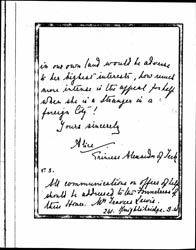 in our own land would be adverse
to her highest interests, how much
more intense is the appeal for help
when she is a stranger in a
foreign City"!
Yours sincerely
Alice
Princess Alexander of Teck
P.S.
All communications or offers of help
should be addressed to the Foundress of
these Homes. Mrs Travers Lewis.
241. Knightsbridge. S.W.